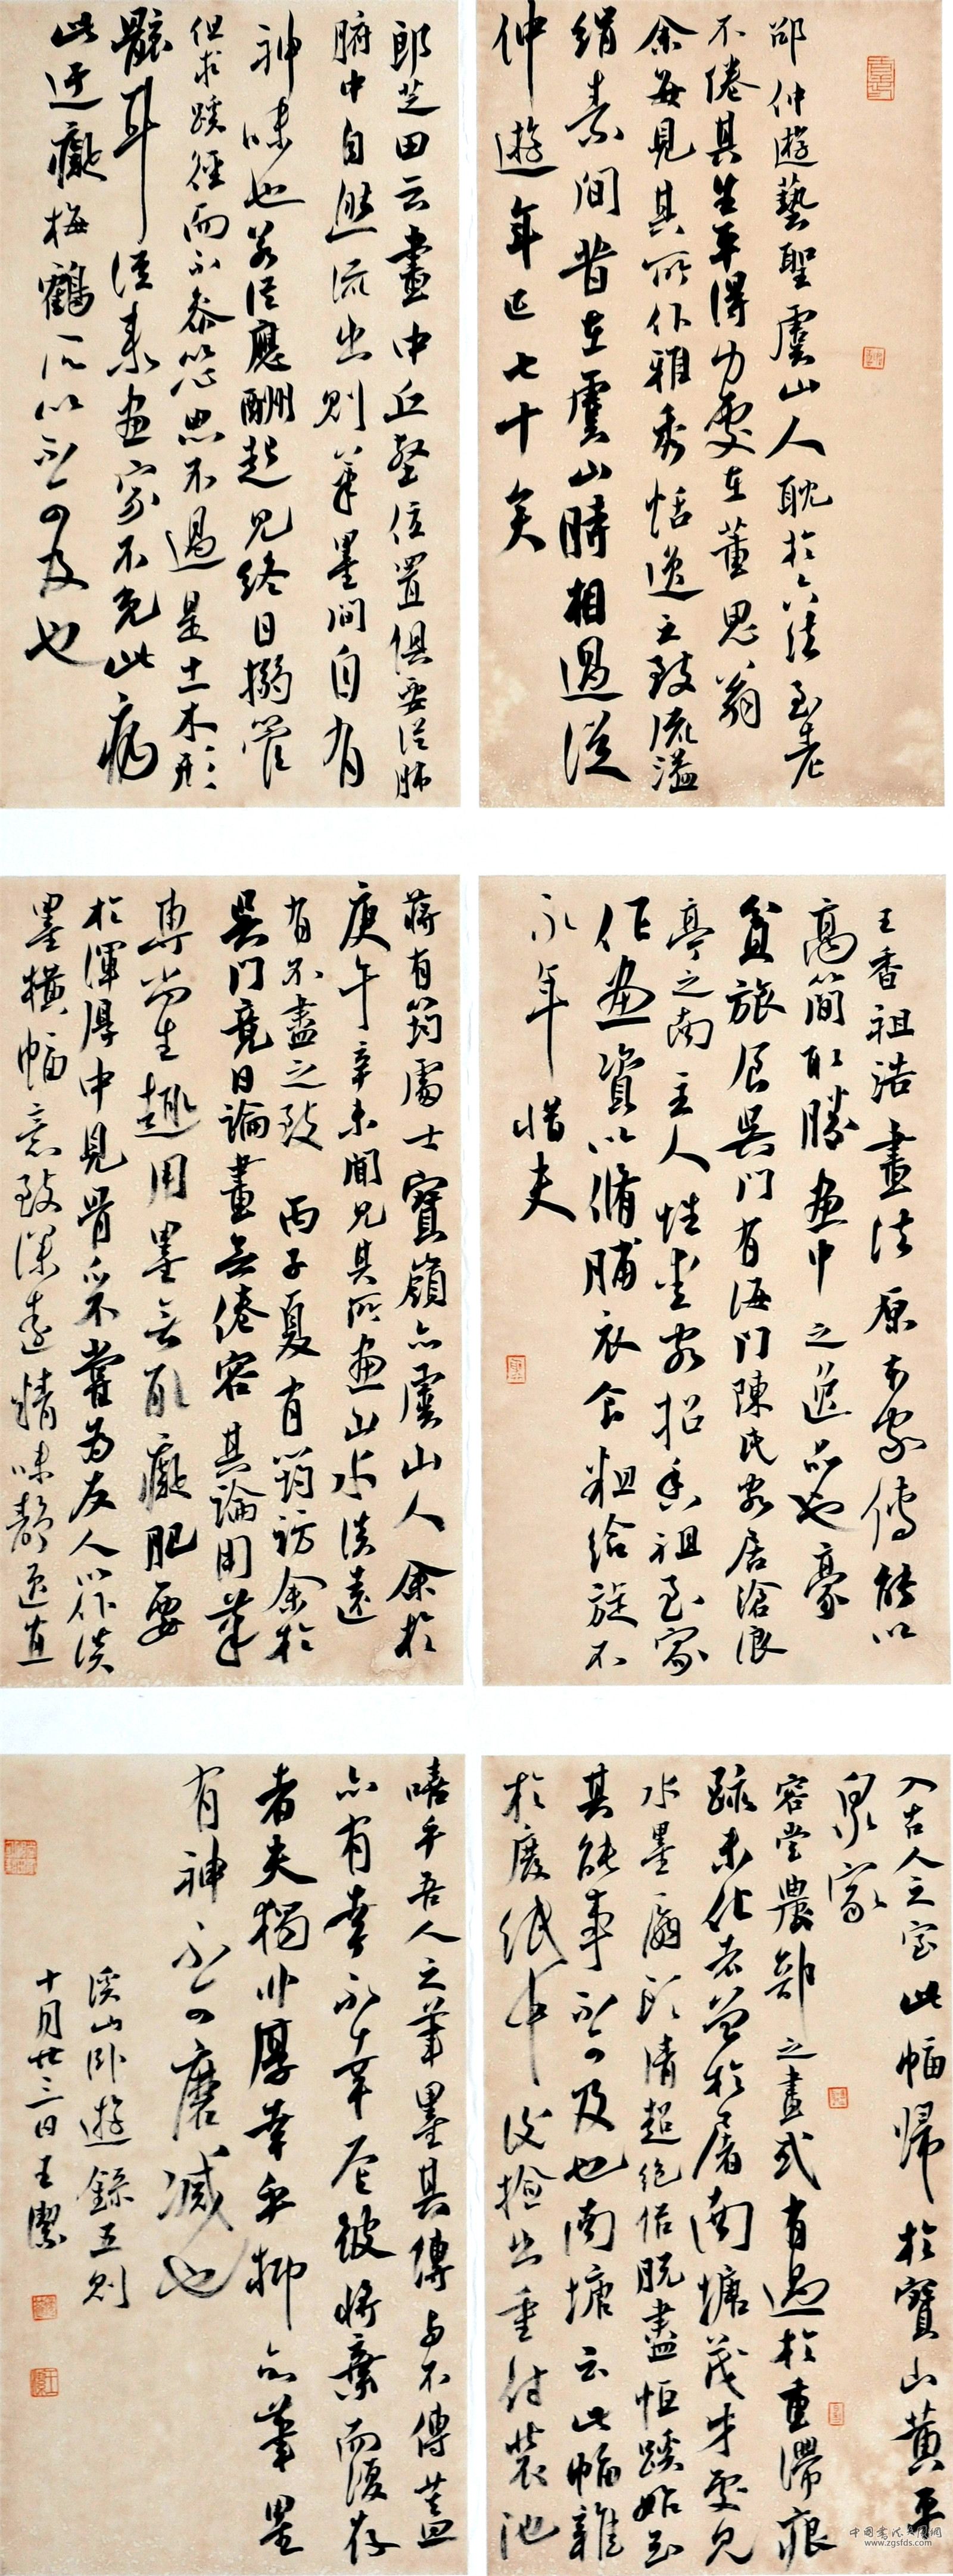 邵仲游藝聖虞山人耽於六法至老
不倦其生平得力處在董思翁
余每見其所作雅秀恬逸之致流溢
絹素間昔在虞山時相過從
仲游年已七十矣
郎芝田云畫中丘壑位置俱要從肺
腑中自然流出則筆墨間自有
神味也若從應酬起見終日搦管
但求蹊徑而不參以心思不過是土木形
骸耳從來畫家不免此病
此迂癡梅鶴所以不可及也
王香祖浩畫法原本家傳能以
高簡取勝畫中之逸品也豪
貧旅居吳門有海門陳氏客居滄浪
亭之南主人性愛客招香祖至家
作畫資以脩脯衣食粗給旋不
永年惜夫
蔣有筠處士寶嶺亦虞山人余於
庚午辛未間見其所畫山水淡遠
有不盡之致丙子夏有筠訪余於
吳門竟日論畫無倦容其論用筆
專尚生趣用墨無取癡肥要
於渾厚中見骨采嘗為友人作淡
墨橫幅意致深遠情味靜逸直
入古人之室此幅歸於寶山黃平
泉家
容堂農部之畫或有過於重滯痕
跡未化者曾於屠南塘茂才處見
水墨扇頭清超絕俗脫盡恒蹊始知
其能事不可及也南塘云此幅雜
於廢紙中後撿出重付裝池
嘻乎吾人之筆墨其傳与不傳蓋
亦有幸不幸存彼將棄而復存
者夫獨非厚幸乎抑亦筆墨
有神不可磨滅也
溪山卧游錄五則
十月廿三日王潔
中國書法大師網
www.zgsfds.com